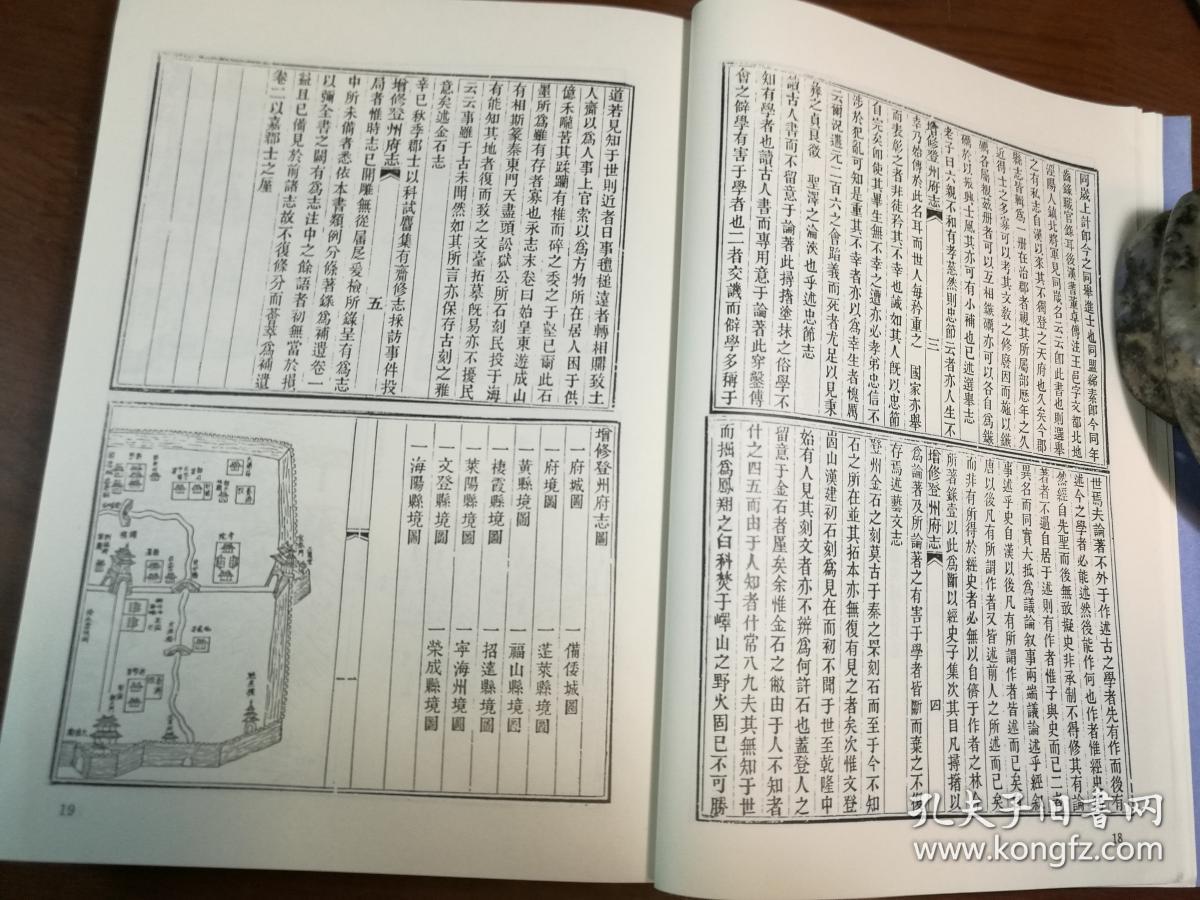 同歲上計卽今之同舉進士也同盟綈素郎今同年
齒錄職官錄耳後漢書董卓傳注王邑字文都北地
涇陽人鎮北將軍見同歲名云云卽此書也則選舉
之有私志自漢以來其不獨登之天府也久矣今郡
縣志皆輯爲一冊在治郡者視其所屬部歷年之久
近得士之多寡可以考其文敎之修廢因而施以鏃
礪各屬披茲冊者可以互相鏃礪亦可以各自爲鏃
礪於以振興士風其亦可有小補也已述選舉志
老子曰六親不和有孝慈然則忠節云者亦人生不
增修登州府志 三
幸乃始傳於此名耳而世人每矜重之 國家亦舉
而表彰之者非徒矜其不幸也誠如其人旣以忠節
自完矣卽使其畢生無不幸之遭亦必孝弟忠信不
涉於犯亂可知是重其不幸者亦以爲幸生者愧厲
云爾況遭元二百六之會蹈義而死者尤足以見秉
彝之貞良徵 聖澤之淪浹也乎述忠節志
讀古人書而不留意于論著此撏撦塗抹之俗學不
知有學者也讀古人書而專用意于論著此穿鑿傅
會之僻學有害于學者也二者交譏而僻學多稱于
世焉夫論著不外于作述古之學者先有作而後有
述今之學者必能述然後能作何也作者惟經史
然經自先聖而後無敢擬史非承制不得修其有論
著者不過自居于述則有作者惟子與史而已二者
異名而同實大抵爲議論叙事兩端議論述乎經叙
事述乎史自漢以後凡有所謂作者皆述而已矣
唐以後凡有所謂作者又皆述前人之所述而已矣
而非有所得於經史者必無以自儕于作者之林今
所著錄壹以此爲斷以經史子集次其目凡撏撦以
增修登州府志 四
爲論著及所論著之有害于學者皆斷而棄之不復
存焉述藝文志
登州金石之刻莫古于秦之罘刻石而至于今不知
石之所在並其拓本亦無復有見之者矣次惟文登
崮山漢建初石刻爲見在而初不聞于世至乾隆中
始有人見其刻文者亦不辨爲何許石也蓋登人之
留意于金石者厪矣余惟金石之敝由于人不知者
什之四五而由于人知者什常八九夫其無知于世
而拙爲鳳翔之臼科焚于嶧山之野火固已不可勝
18
道若見知于世則近者日事氊槌遠者轉相購致土
人齎以爲人事上官索以爲方物所在居人困于供
億禾隴苦其蹂躪有椎而碎之委之于壑已爾此石
壘所爲雖有存者寡也永志末卷曰始皇東遊成山
有相斯篆秦東門天盡頭訟獄公所石刻民投于海
有能知其地者復而致之文臺拓摹旣易亦不擾民
云云事雖于古未聞然如其所言亦保存古刻之雅
意矣述金石志
辛巳秋季郡士以科試麕集有齎修志採訪事件投
增修登州府志 五
局者惟時志已開雕無從羼尾爰檢所錄呈有爲志
中所未備者悉依本書類例分條著錄爲補遺卷一
以彌全書之闕有爲志注中之餘語者初無當於損
益且已備見於前諸志故不復修分而薈萃爲補遺
卷二以嘉郡士之厪
增修登州府志圖
一府城圖
一備倭城圖
一府境圖
一蓬萊縣境圖
一黃縣境圖
一福山縣境圖
一棲霞縣境圖
一招遠縣境圖
一萊陽縣境圖
一寧海州境圖
一文登縣境圖
一榮成縣境圖
一海陽縣境圖
一
19
孔夫子旧书网
www.kongfz.com